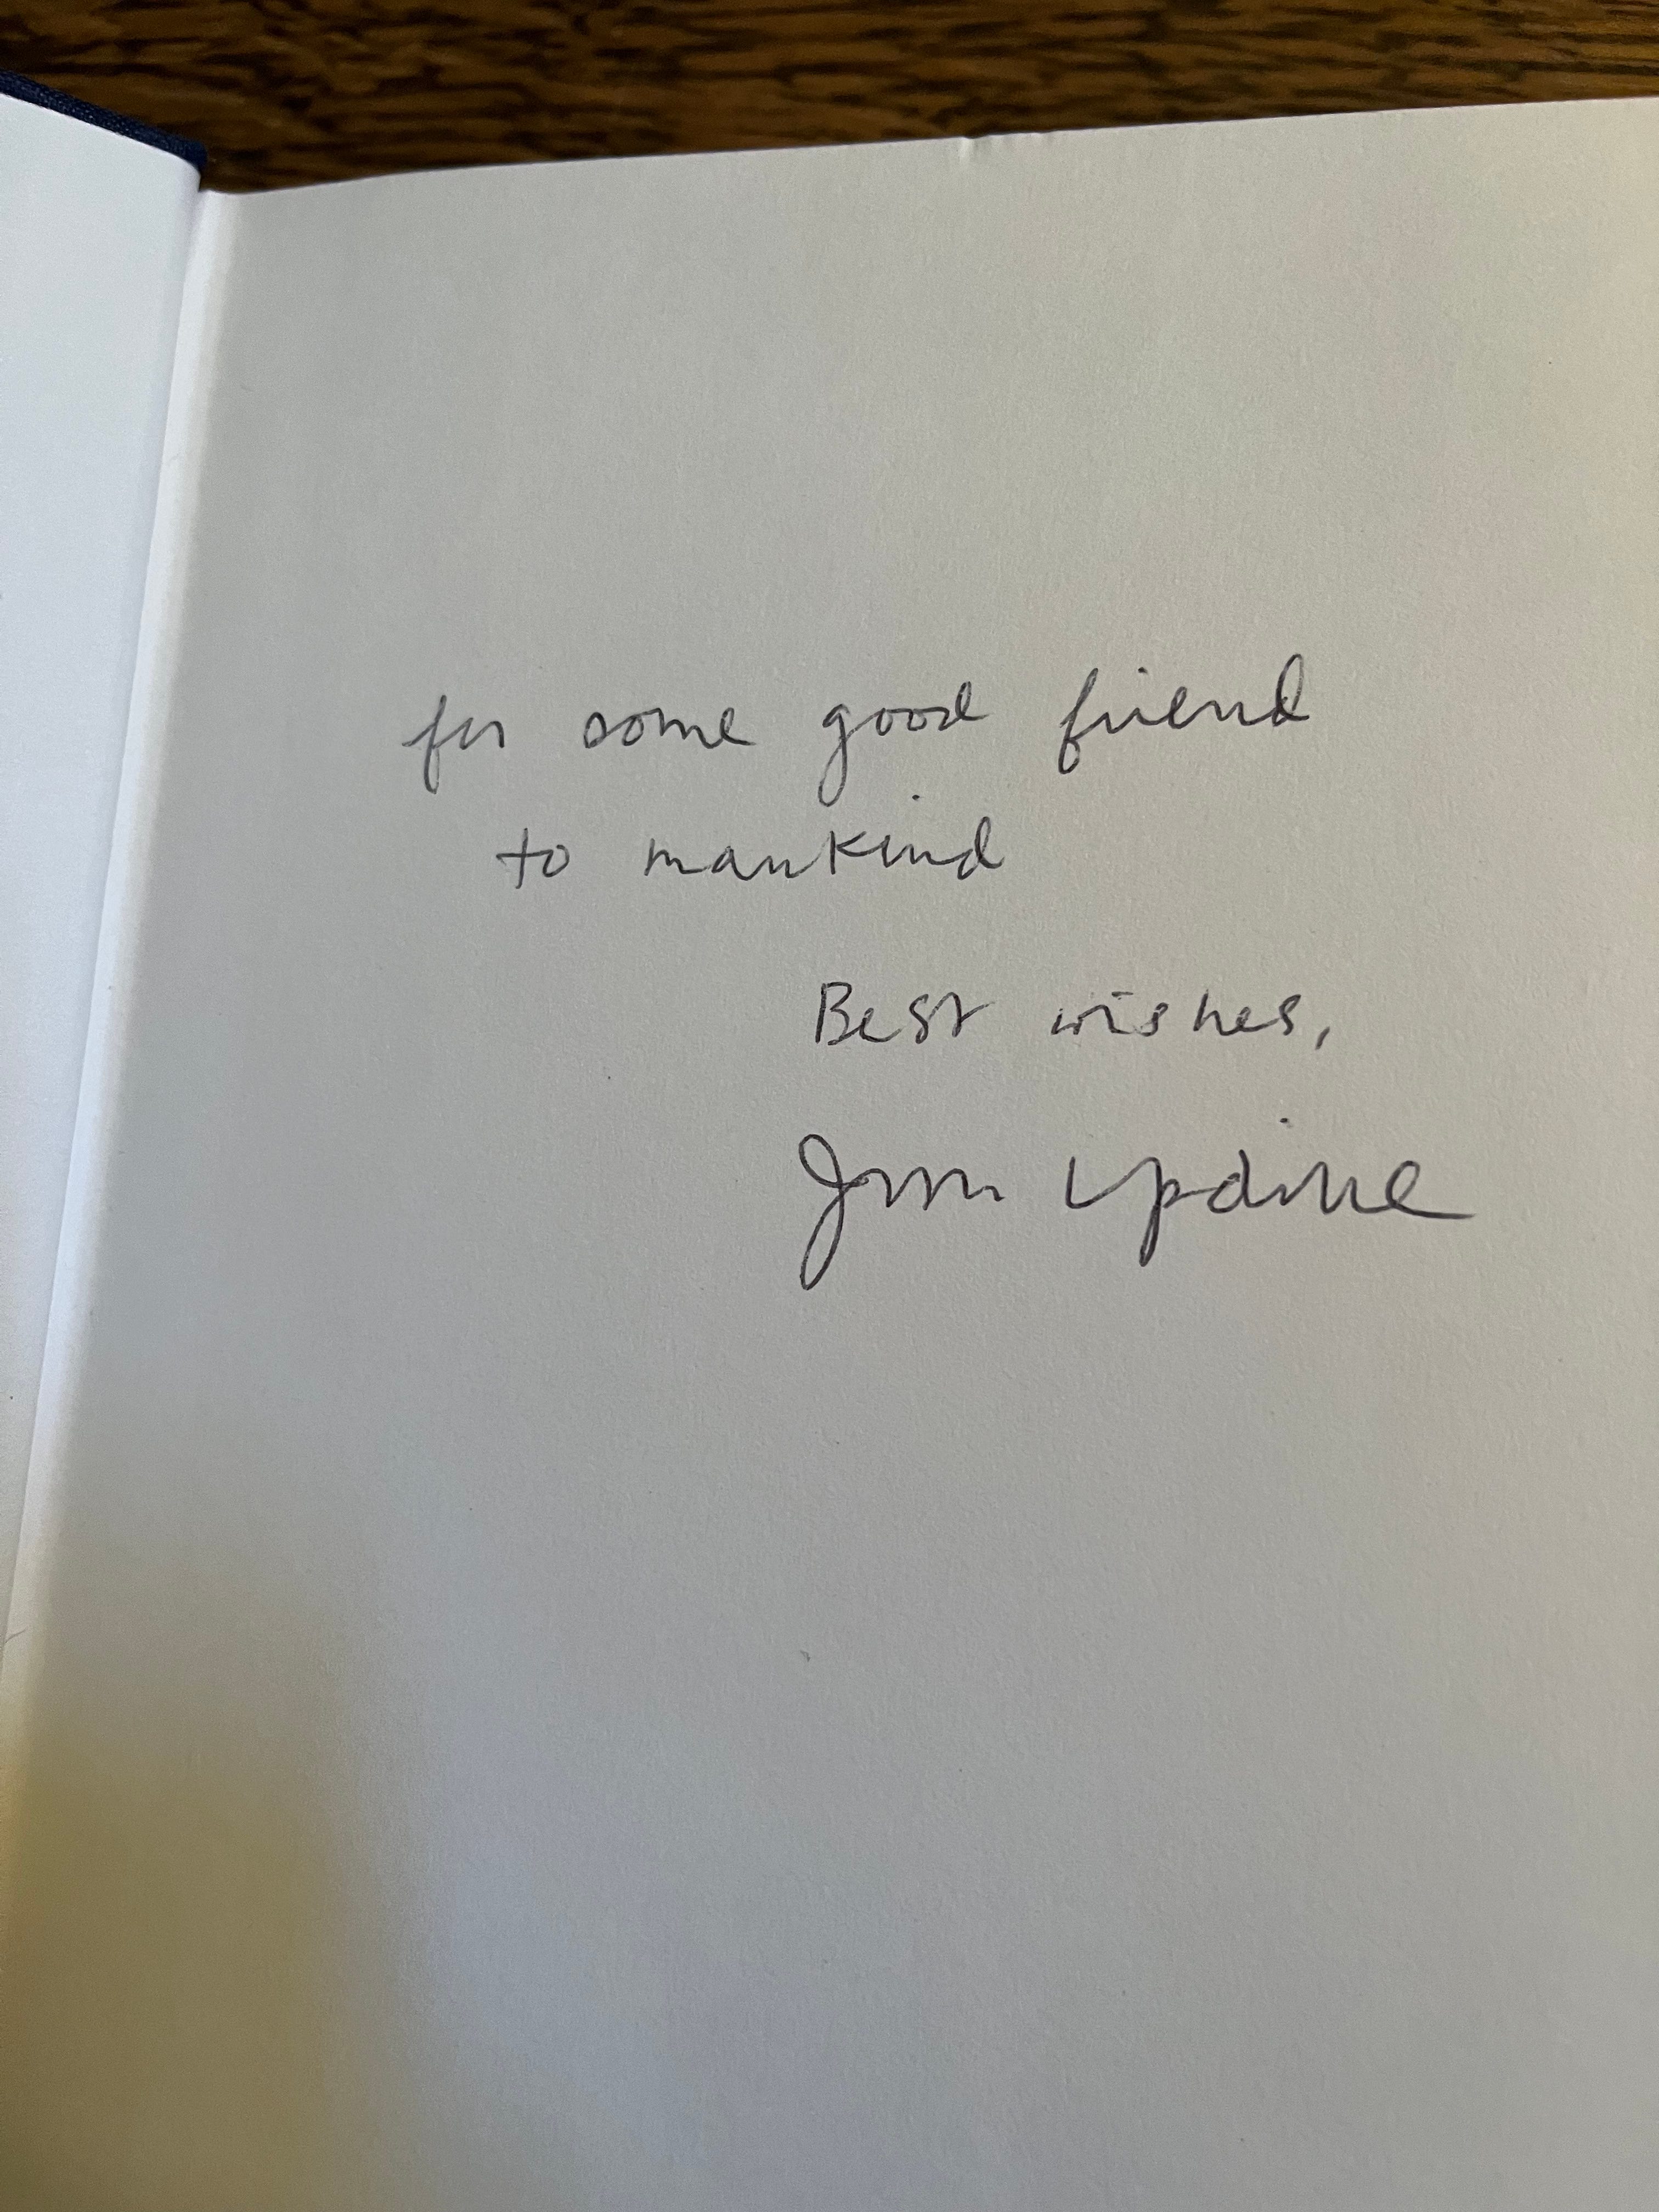 for some good friend
to mankind
Best wishes,
John Updike